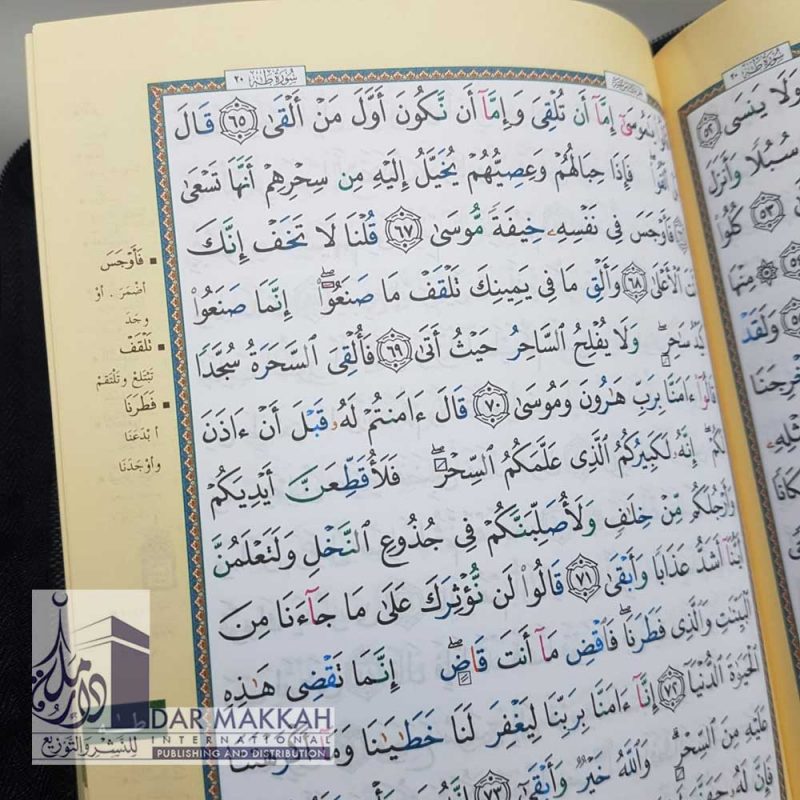 سُورَةُ طه ٢٠
يَٰمُوسَىٰٓ إِمَّآ أَن تُلْقِيَ وَإِمَّآ أَن نَّكُونَ أَوَّلَ مَنْ أَلْقَىٰ ٦٥ قَالَ
فَإِذَا حِبَالُهُمْ وَعِصِيُّهُمْ يُخَيَّلُ إِلَيْهِ مِن سِحْرِهِمْ أَنَّهَا تَسْعَىٰ
فَأَوْجَسَ فِي نَفْسِهِۦ خِيفَةً مُّوسَىٰ ٦٧ قُلْنَا لَا تَخَفْ إِنَّكَ
أَنتَ الْأَعْلَىٰ ٦٨ وَأَلْقِ مَا فِي يَمِينِكَ تَلْقَفْ مَا صَنَعُوٓا۟ إِنَّمَا صَنَعُوا۟
كَيْدُ سَٰحِرٍ وَلَا يُفْلِحُ السَّاحِرُ حَيْثُ أَتَىٰ ٦٩ فَأُلْقِيَ السَّحَرَةُ سُجَّدًا
قَالُوٓا۟ ءَامَنَّا بِرَبِّ هَٰرُونَ وَمُوسَىٰ ٧٠ قَالَ ءَامَنتُمْ لَهُۥ قَبْلَ أَنْ ءَاذَنَ
لَكُمْ إِنَّهُۥ لَكَبِيرُكُمُ الَّذِي عَلَّمَكُمُ السِّحْرَ فَلَأُقَطِّعَنَّ أَيْدِيَكُمْ
وَأَرْجُلَكُم مِّنْ خِلَٰفٍ وَلَأُصَلِّبَنَّكُمْ فِي جُذُوعِ النَّخْلِ وَلَتَعْلَمُنَّ
أَيُّنَآ أَشَدُّ عَذَابًا وَأَبْقَىٰ ٧١ قَالُوا۟ لَن نُّؤْثِرَكَ عَلَىٰ مَا جَآءَنَا مِنَ
الْبَيِّنَٰتِ وَالَّذِي فَطَرَنَا فَاقْضِ مَآ أَنتَ قَاضٍ إِنَّمَا تَقْضِي هَٰذِهِ
الْحَيَوٰةَ الدُّنْيَآ ٧٢ إِنَّآ ءَامَنَّا بِرَبِّنَا لِيَغْفِرَ لَنَا خَطَٰيَٰنَا
عَلَيْهِ مِنَ السِّحْرِ وَاللَّهُ خَيْرٌ وَأَبْقَىٰٓ ٧٣ إِنَّهُۥ
فَإِنَّ لَهُۥ جَهَنَّمَ
فَأَوْجَسَ
أضْمَرَ . أوْ
وجَدَ
تَلْقَفْ
تَبْتَلِعْ وتَلْتَقِمْ
فَطَرَنَا
أبْدَعَنَا
وأوْجَدَنَا
سُورَةُ طه ٢٠
وَلَا يَنسَى ٥٢
سُبُلًا وَأَنزَلَ
٥٣ كُلُوا۟
مِنْهَا
وَلَقَدْ
دار مكة
للنشر والتوزيع
DAR MAKKAH
INTERNATIONAL
PUBLISHING AND DISTRIBUTION